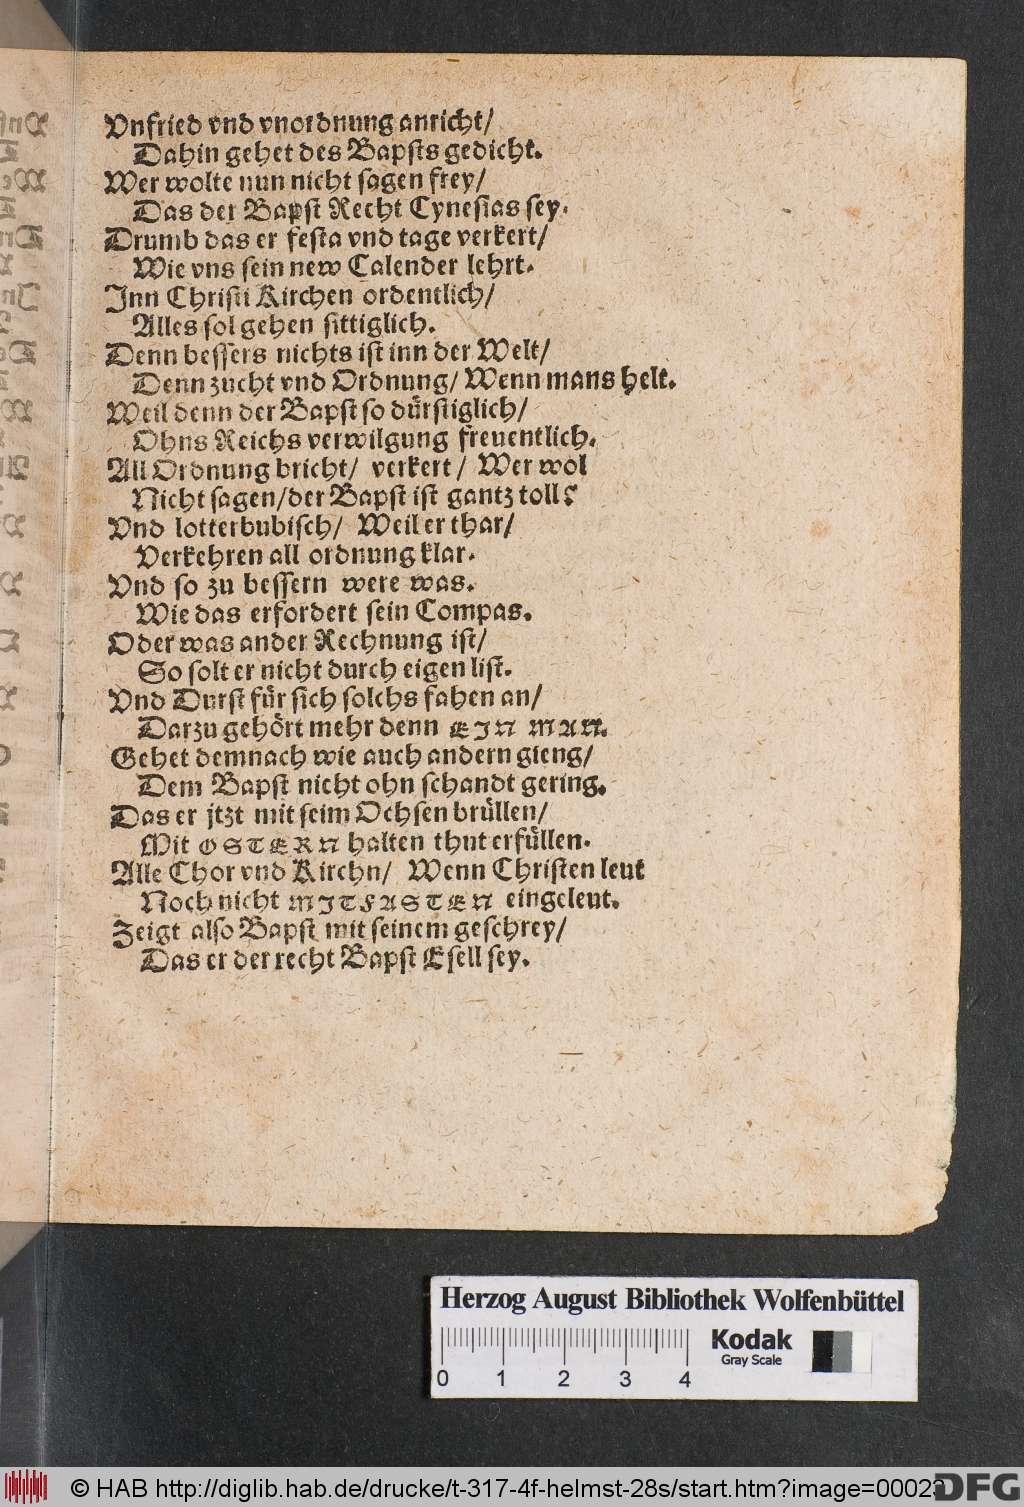 Vnfried vnd vnordnung anricht/
Dahin gehet des Bapsts gedicht.
Wer wolte nun nicht sagen frey/
Das der Bapst Recht Cynesias sey.
Drumb das er festa vnd tage verkert/
Wie vns sein new Calender lehrt.
Inn Christi Kirchen ordentlich/
Alles sol gehen sittiglich.
Denn bessers nichts ist inn der Welt/
Denn zucht vnd Ordnung/ Wenn mans helt.
Weil denn der Bapst so dürstiglich/
Ohns Reichs verwilgung freuentlich.
All Ordnung bricht/ verkert/ Wer wol
Nicht sagen/der Bapst ist gantz toll?
Vnd lotterbubisch/ Weil er thar/
Verkehren all ordnung klar.
Vnd so zu bessern were was.
Wie das erfordert sein Compas.
Oder was ander Rechnung ist/
So solt er nicht durch eigen list.
Vnd Durst für sich solchs fahen an/
Darzu gehört mehr denn EIN MAN.
Gehet demnach wie auch andern gieng/
Dem Bapst nicht ohn schandt gering.
Das er jtzt mit seim Ochsen brüllen/
Mit OSTERN halten thut erfüllen.
Alle Chor vnd Kirchn/ Wenn Christen leut
Noch nicht MITFASTEN eingeleut.
Zeigt also Bapst mit seinem geschrey/
Das er der recht Bapst Esell sey.
Herzog August Bibliothek Wolfenbüttel
Kodak
Gray Scale
0 1 2 3 4
© HAB http://diglib.hab.de/drucke/t-317-4f-helmst-28s/start.htm?image=00023
DFG